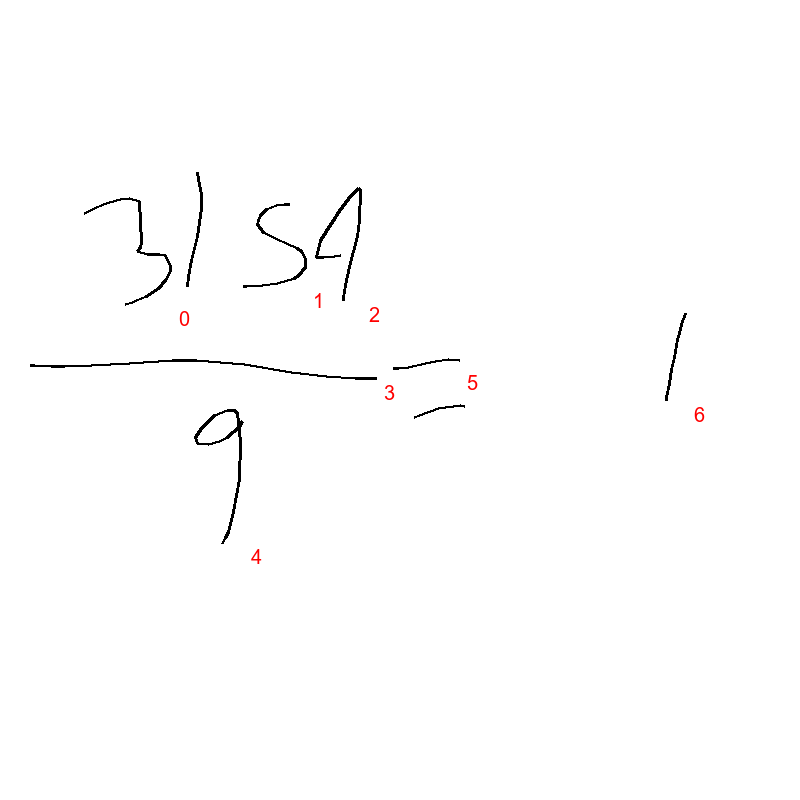 3154
9
=
1
0
1
2
3
4
5
6